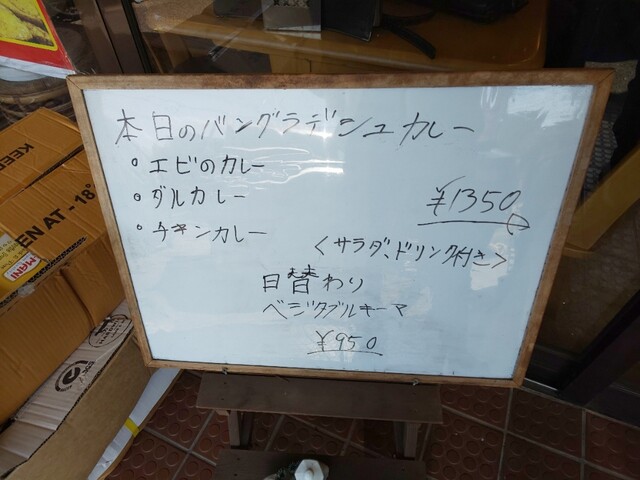 本日のバングラデシュカレー
。エビのカレー
。ダルカレー
¥1350
。チキンカレー
＜サラダ、ドリンク付き＞
日替わり
ベジタブルキーマ
¥950
KEE
EN AT - 18°
MANI